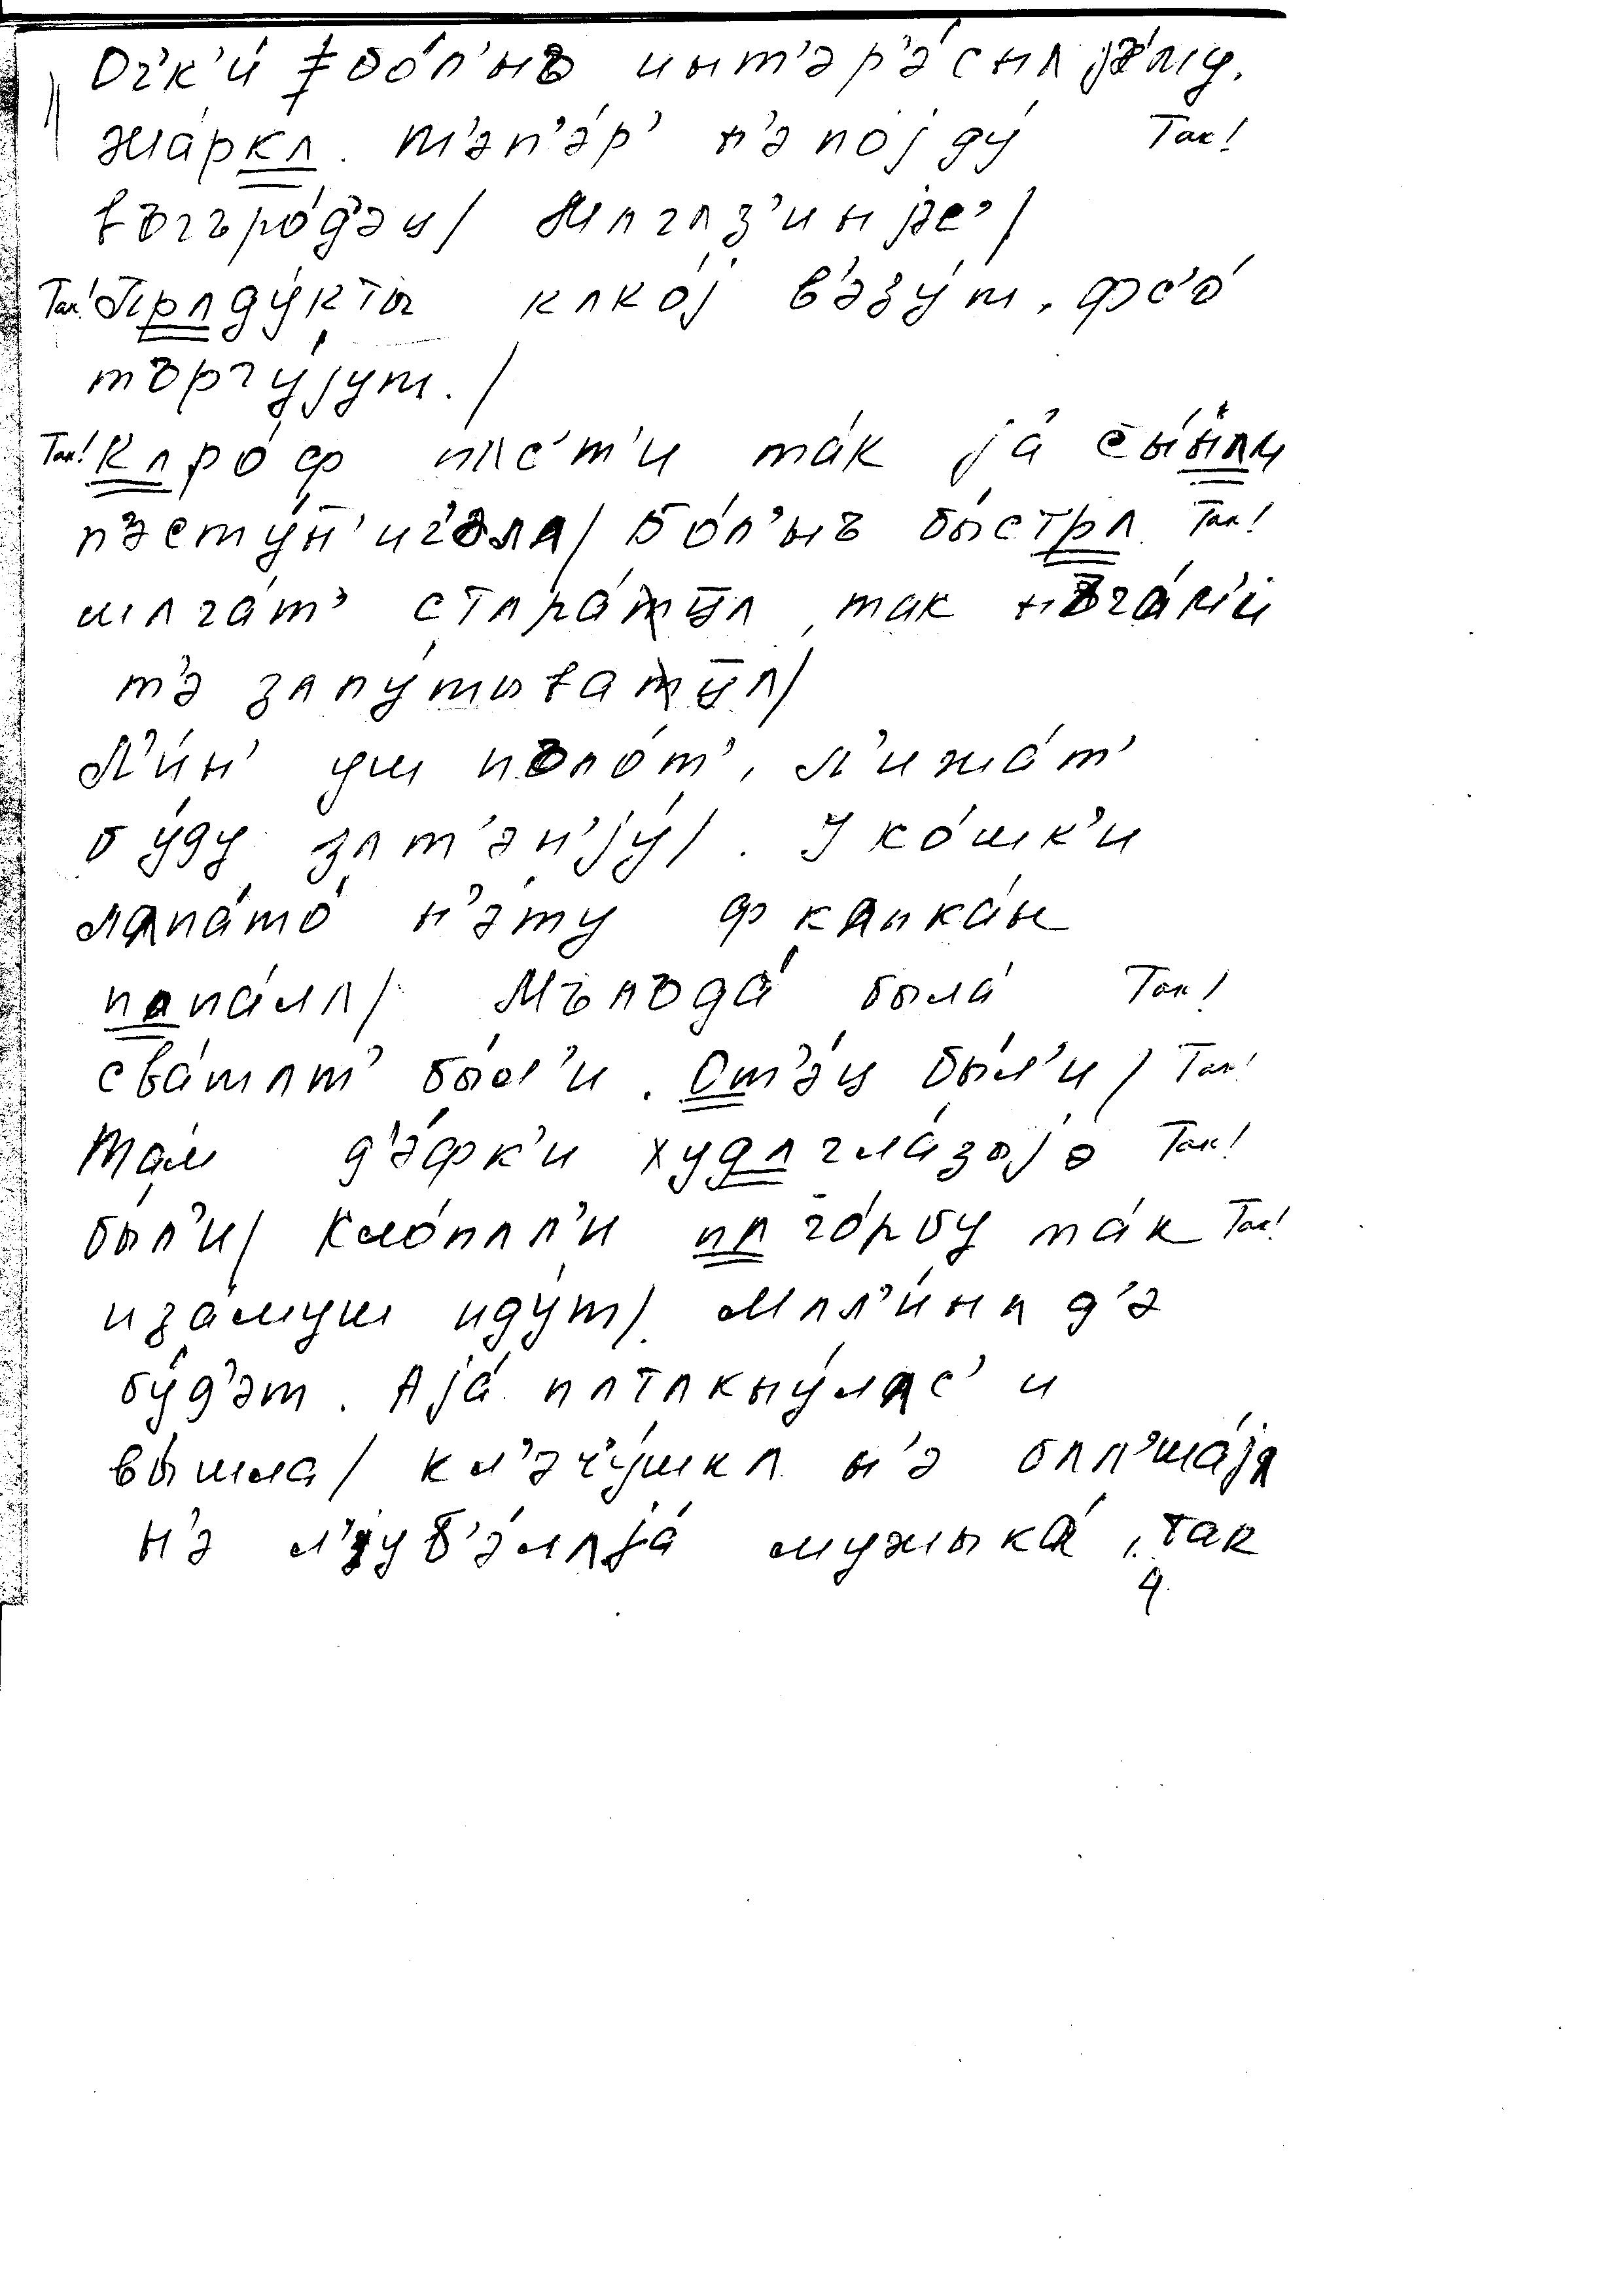 Оч'к'и́ бо́л'нъ инт'эр'э́снл је́лıу.
жа́ркл. т'эп'э́р' н'э појду́ Так!
въгъро́д'эц/ Млглз'ин јес'/
Так! Прлду́кты клко́ј в'эзу́т, фс'о́
търгу́јут./
Так! Клро́ф плс'т'и та́к ја́ сы́нлм
пэсту́н'ич'ала/ бо́л'нъ бы́стрл Так!
шлга́т' стлра́јцл, так нъга́м'и
т'э злпу́тывајцл/
Л'и́н' уш пъло́т', л'ижа́т'
бу́ду злт'эн'ју́/. У ко́шк'и
ллпа́то́ н'э́ту ф клпка́н
плпа́лл/ Мълъда́ была́ Так!
сва́тлт' бы́л'и. От'э́ц бы́л'и/ Так!
Там д'э́фк'и худлгла́зыјэ Так!
бы́л'и/ Кло́плл'и пл го́рбу та́к Так!
и за́муш иду́т/. Млл'и́нл д'э
бу́д'эт. А ја́ плтлкну́ллс' и
вы́шла/ кл'эч'у́шкл н'э блл'ша́јл
н'э л'уб'э́лл ја́ мужыка́, так
4.